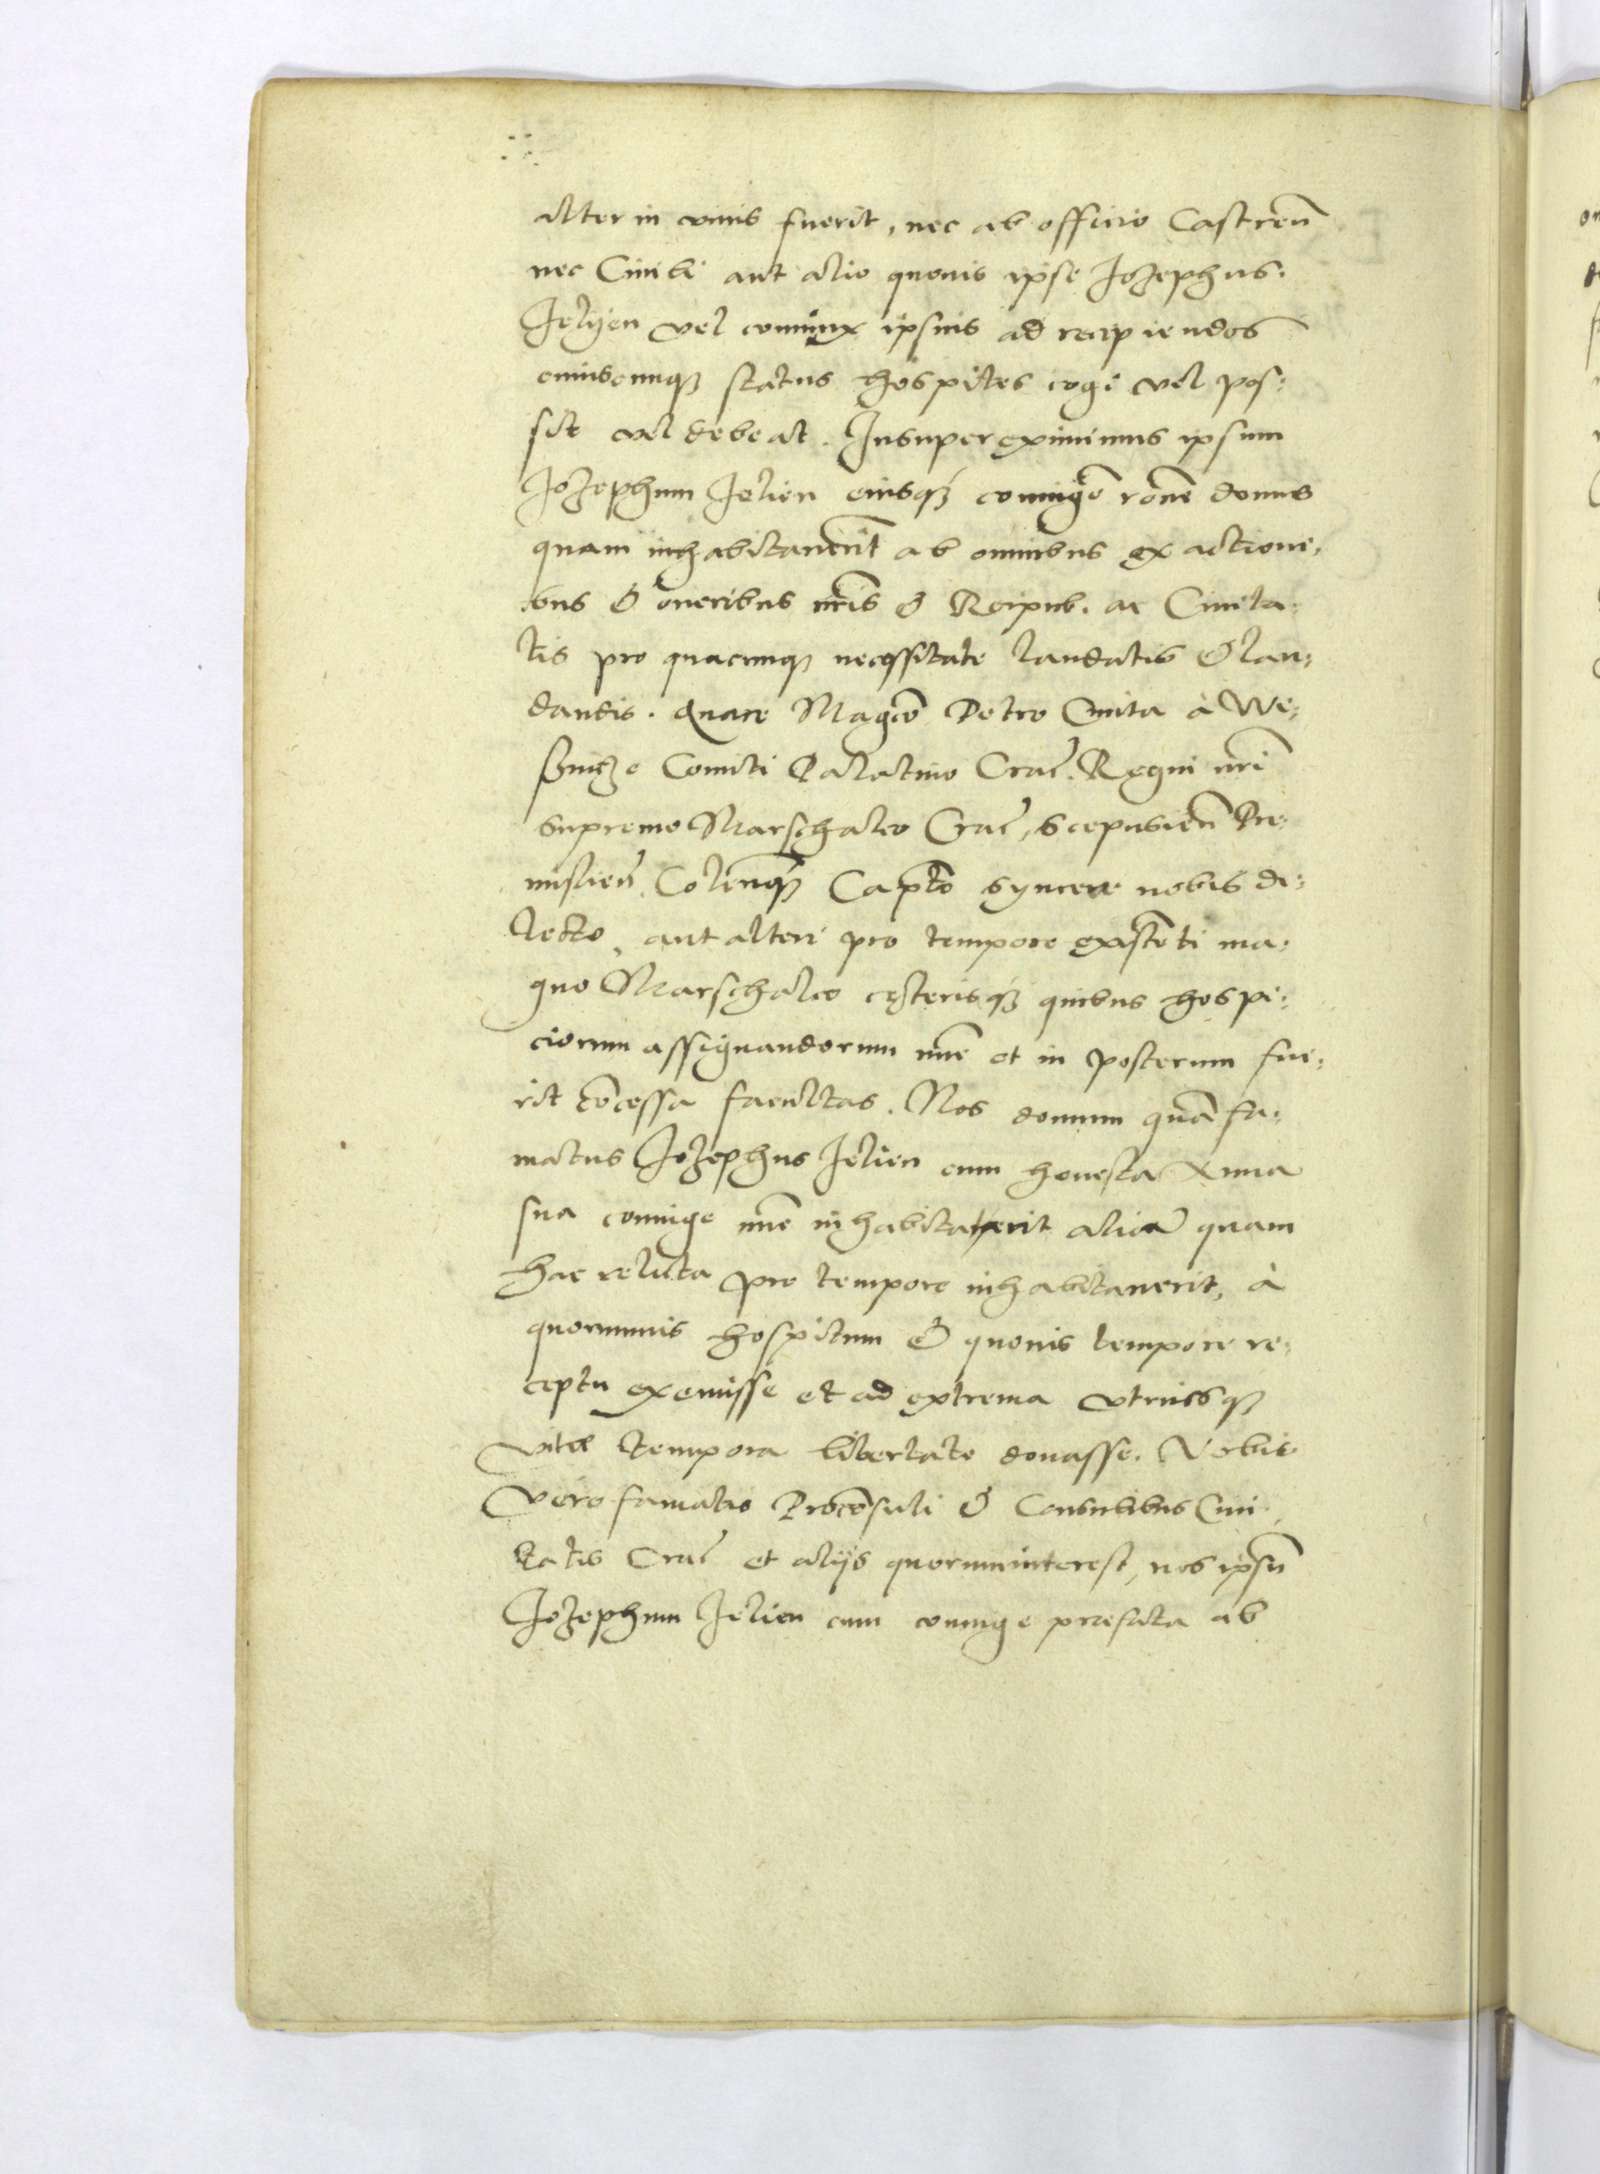 alter in viuis fuerit, nec ab officio Castren̄
nec Ciuili aut alio quouis ipse Jozephus.
Jelijen vel coniunx ipsius ad recipiendos
cuiuscunqʒ status hospites cogi vel pos:
sit vel debeat. Insuper eximimus ipsum
Jozephum Jelien eiusqʒ coniugē rōne domus
quam inhabitauerīt ab omnibus exactione:
bus & oneribus nr̄is & Reipub. ac Ciuita:
tis pro quacunqʒ necessitate laudatis & lau:
dandis. Quare Maḡco Petro Cmita à We:
Comiti Palatino Crac̄. Regni nr̄i
Supremo Marschalco Crac̄, Scepusien̄ Pre:
mislien̄ Colenq̄ʒ Capt̄o syncere nobis di:
lecto, aut alteri pro tempore existēti ma:
gno Marschalco cęterisqʒ quibus hospi:
ciorum assignandorum nūc et in posterum fue:
rit cōcessa facultas. Nos domum quā fa:
matus Jozephus Jelien cum honesta Anna
sua coniuge nūc inhabitauerit aliā quam
hac relicta pro tempore inhabitauerit, à
quorumuis hospitum & quouis tempore re:
ceptu exemisse et ad extrema vtriusqʒ
vitæ tempora libertate donasse. Vobis
vero famatis Procōsuli & Consulibus Ciui:
tatis Crac̄ et alijs quorum interest, nos ipsū
Jozephum Jelien cum coniuge præfata ab